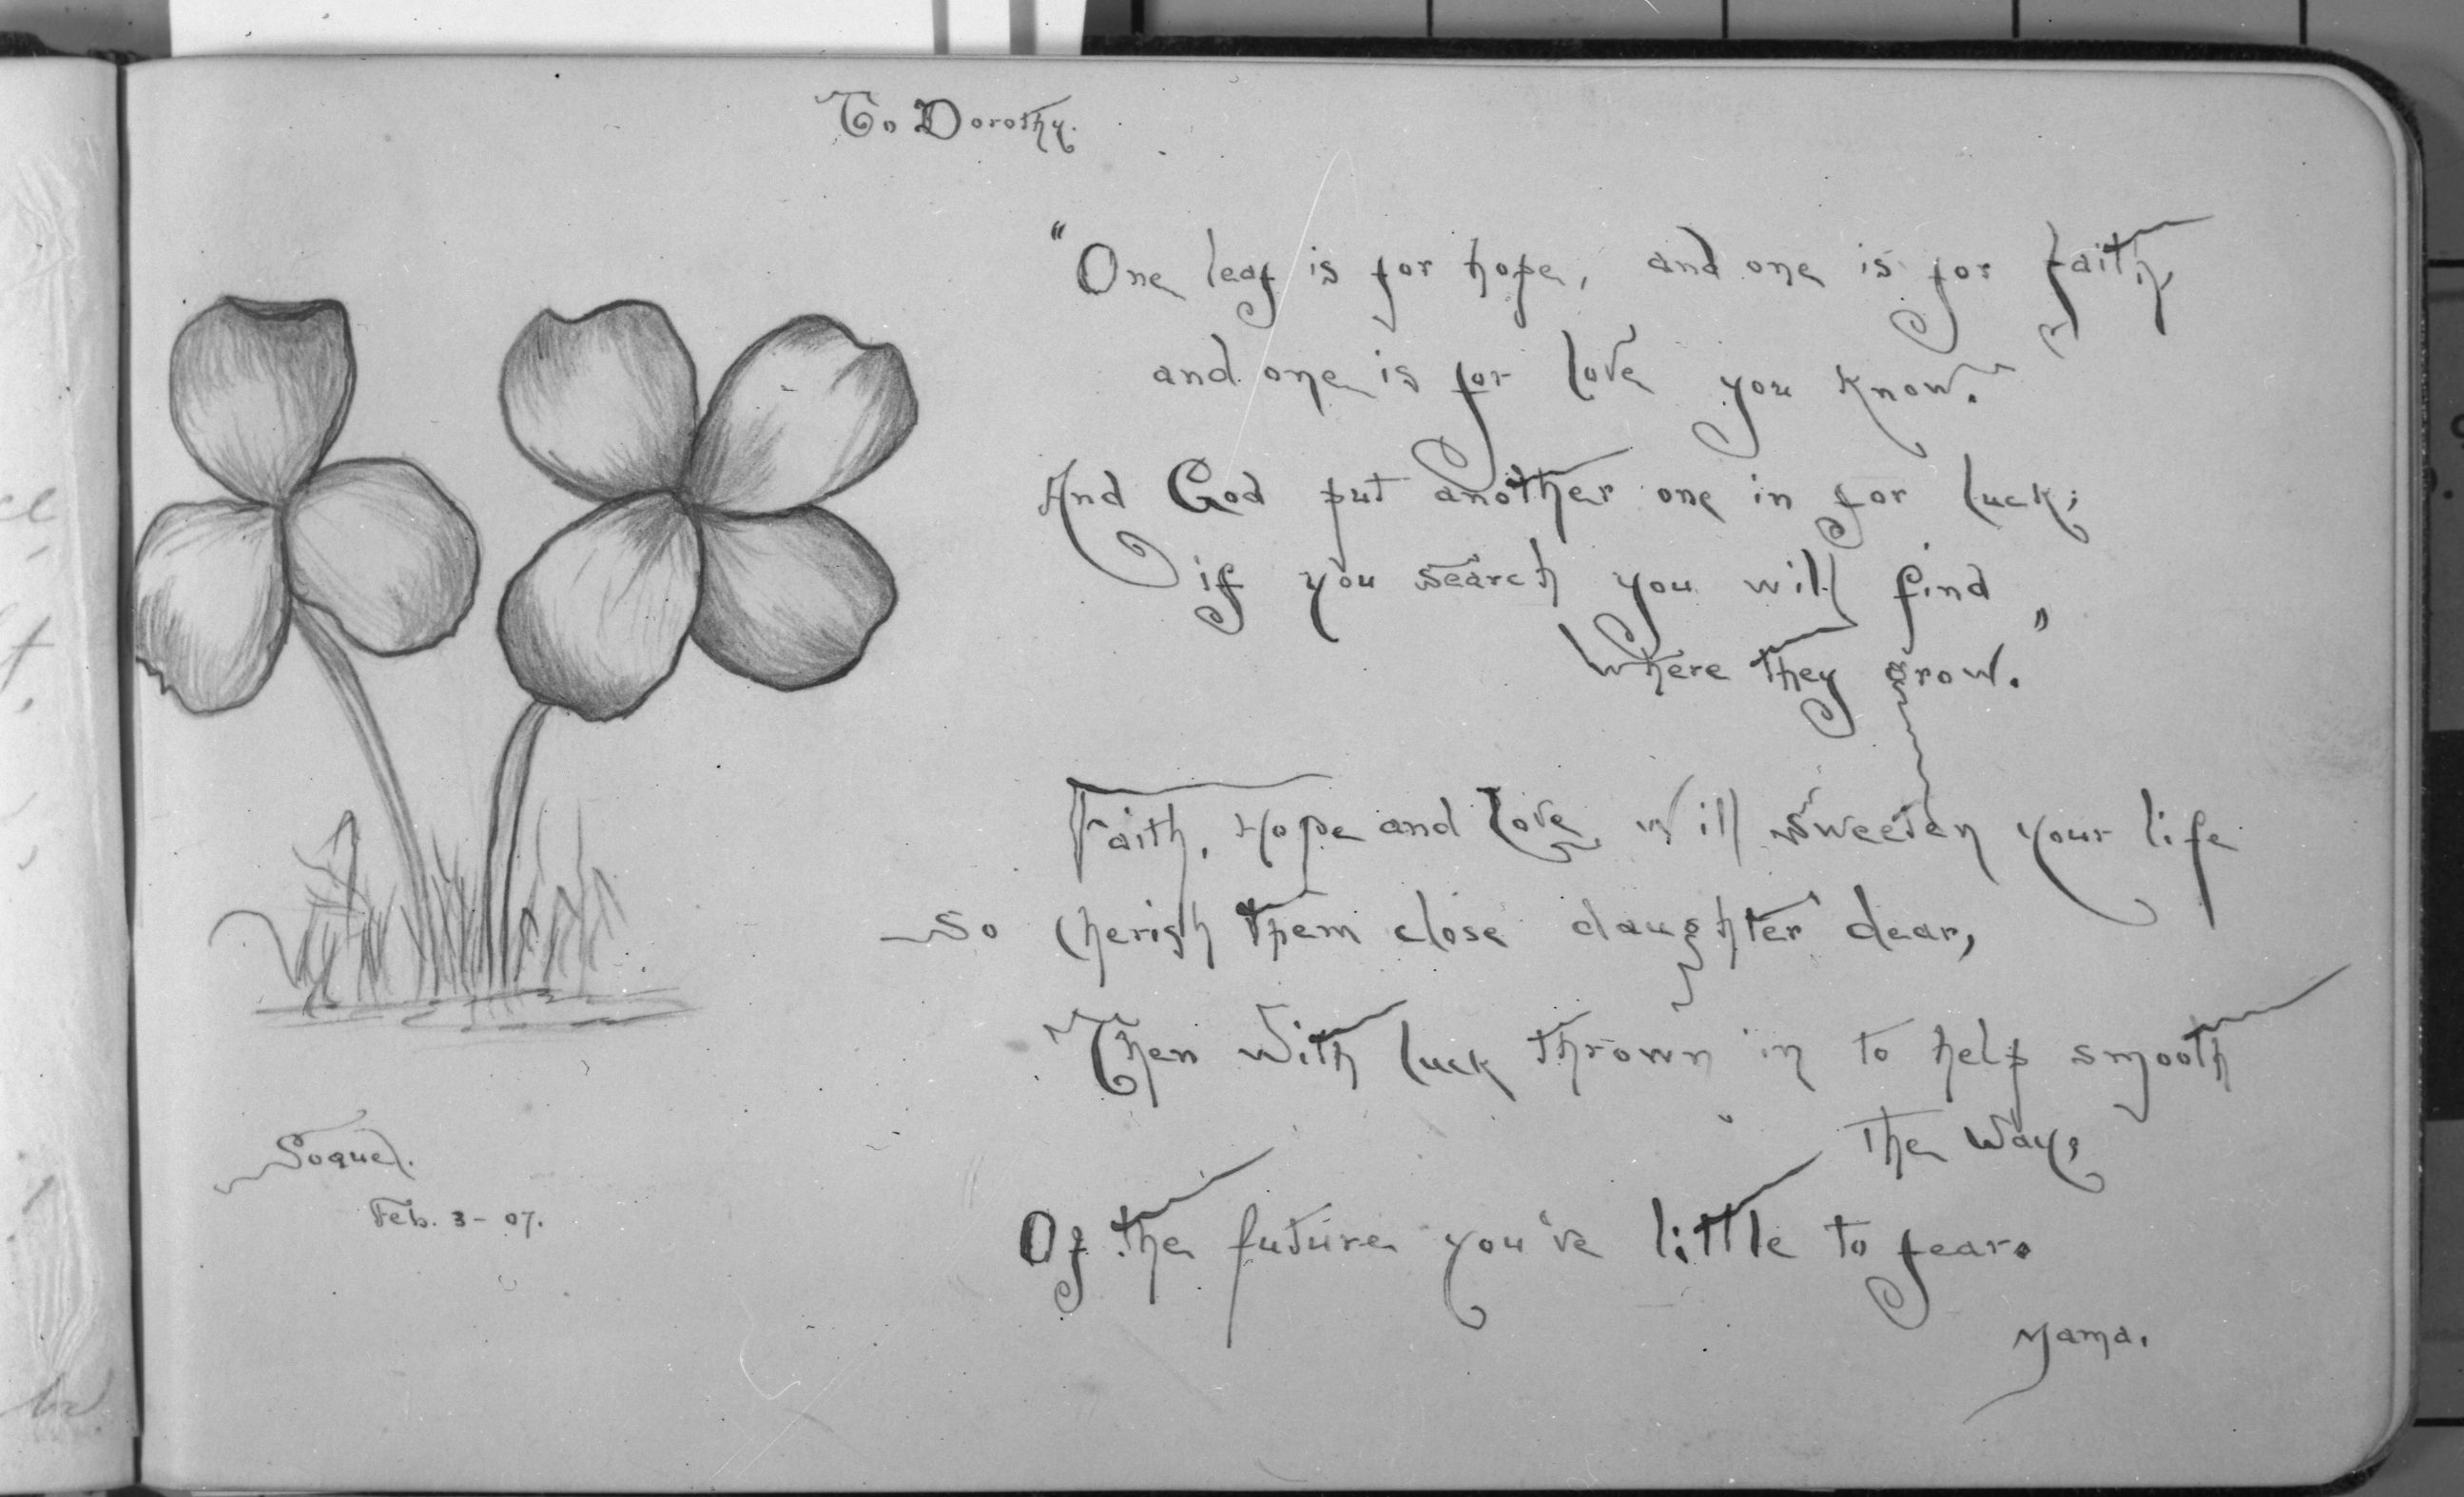 To Dorothy.
"One leaf is for hope, and one is for faith,
and one is for love you know.
And God put another one in for luck;
if you search you will find
where they grow."
Faith, Hope and Love, will sweeten your life
So cherish them close daughter dear,
Then with luck thrown in to help smooth
the way,
Of the future you've little to fear.
Mama.
Soquel.
Feb. 3 - 07.